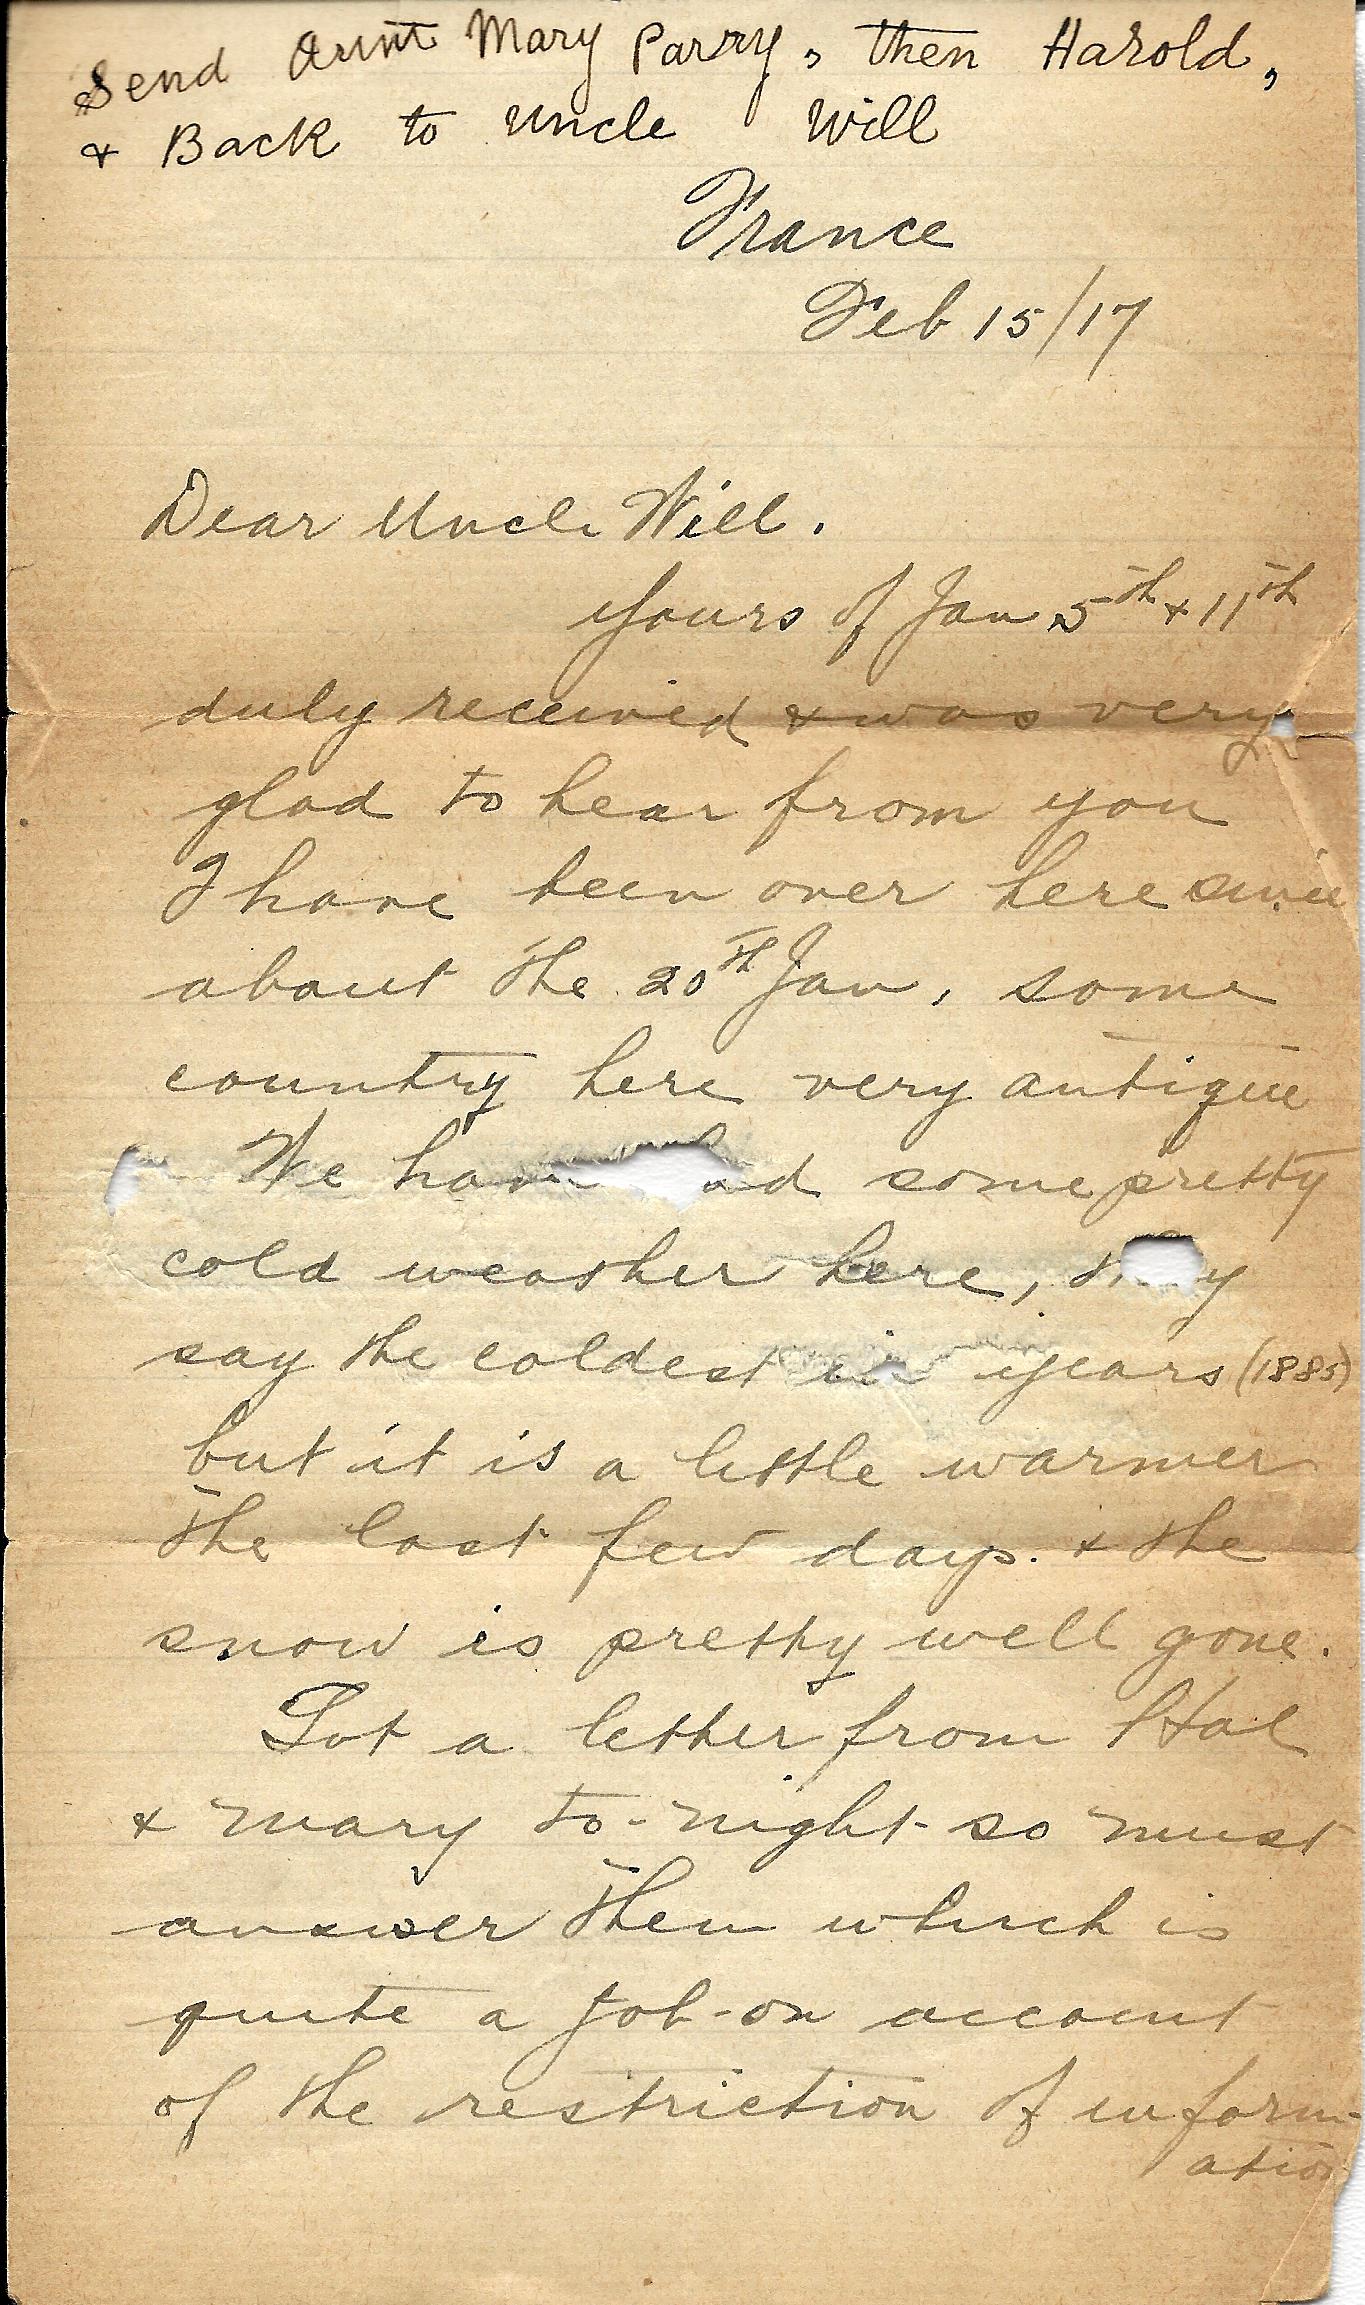 Send Aunt Mary Parry, then Harold,
& Back to Uncle Will
France
Feb 15/17
Dear Uncle Will.
Yours of Jan 5th & 11th
duly received & was very
glad to hear from you
I have been over here since
about the 20th Jan, some
country here very antique
We have had some pretty
cold weather here, they
say the coldest in years (1885)
but it is a little warmer
the last few days. & the
snow is pretty well gone.
Got a letter from Hal
& Mary to-night so must
answer them which is
quite a job-on account
of the restriction of inform-
ation